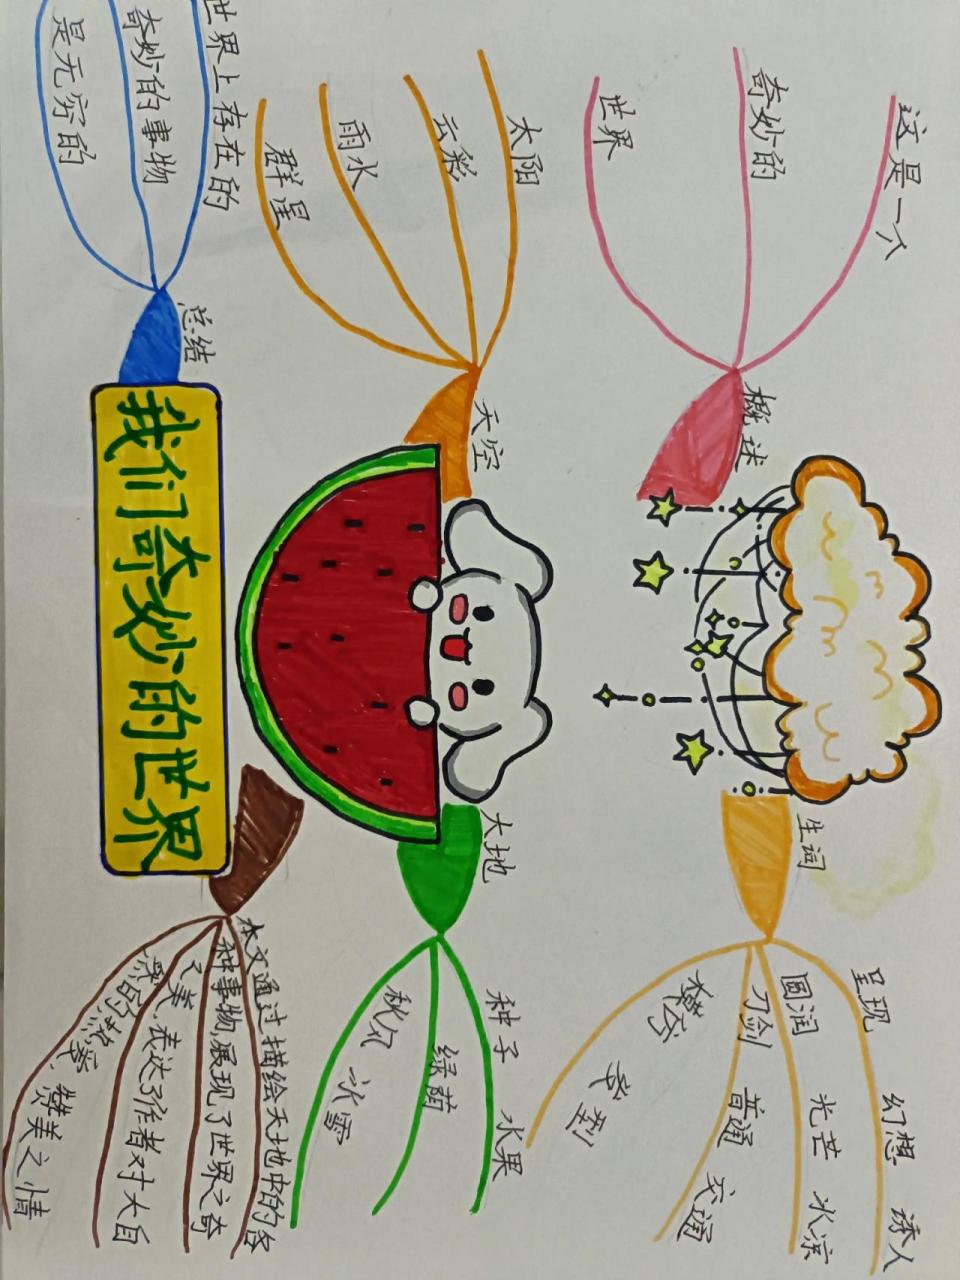 概述
这是一个
奇妙的
世界
生词
呈现 幻想 诱人
圆润 光芒 冰凉
刀剑 普通 交通
天空
太阳
云彩
雨水
群星
大地
种子 水果
绿荫
秋风 冰雪
总结
世界上存在的
奇妙的事物
是无穷的
我们奇妙的世界
本文通过描绘天地中的各
种事物,展现了世界之奇
之美,表达了作者对大自
然的热爱、赞美之情